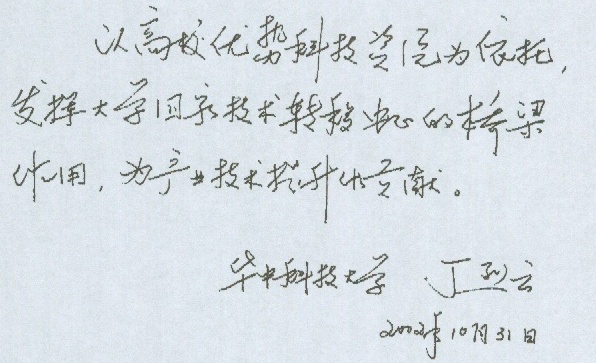 以高校优势科技资源为依托，
发挥大学国家技术转移中心的桥梁
作用，为产业技术提升作贡献。
华中科技大学 丁烈云
2002年10月31日